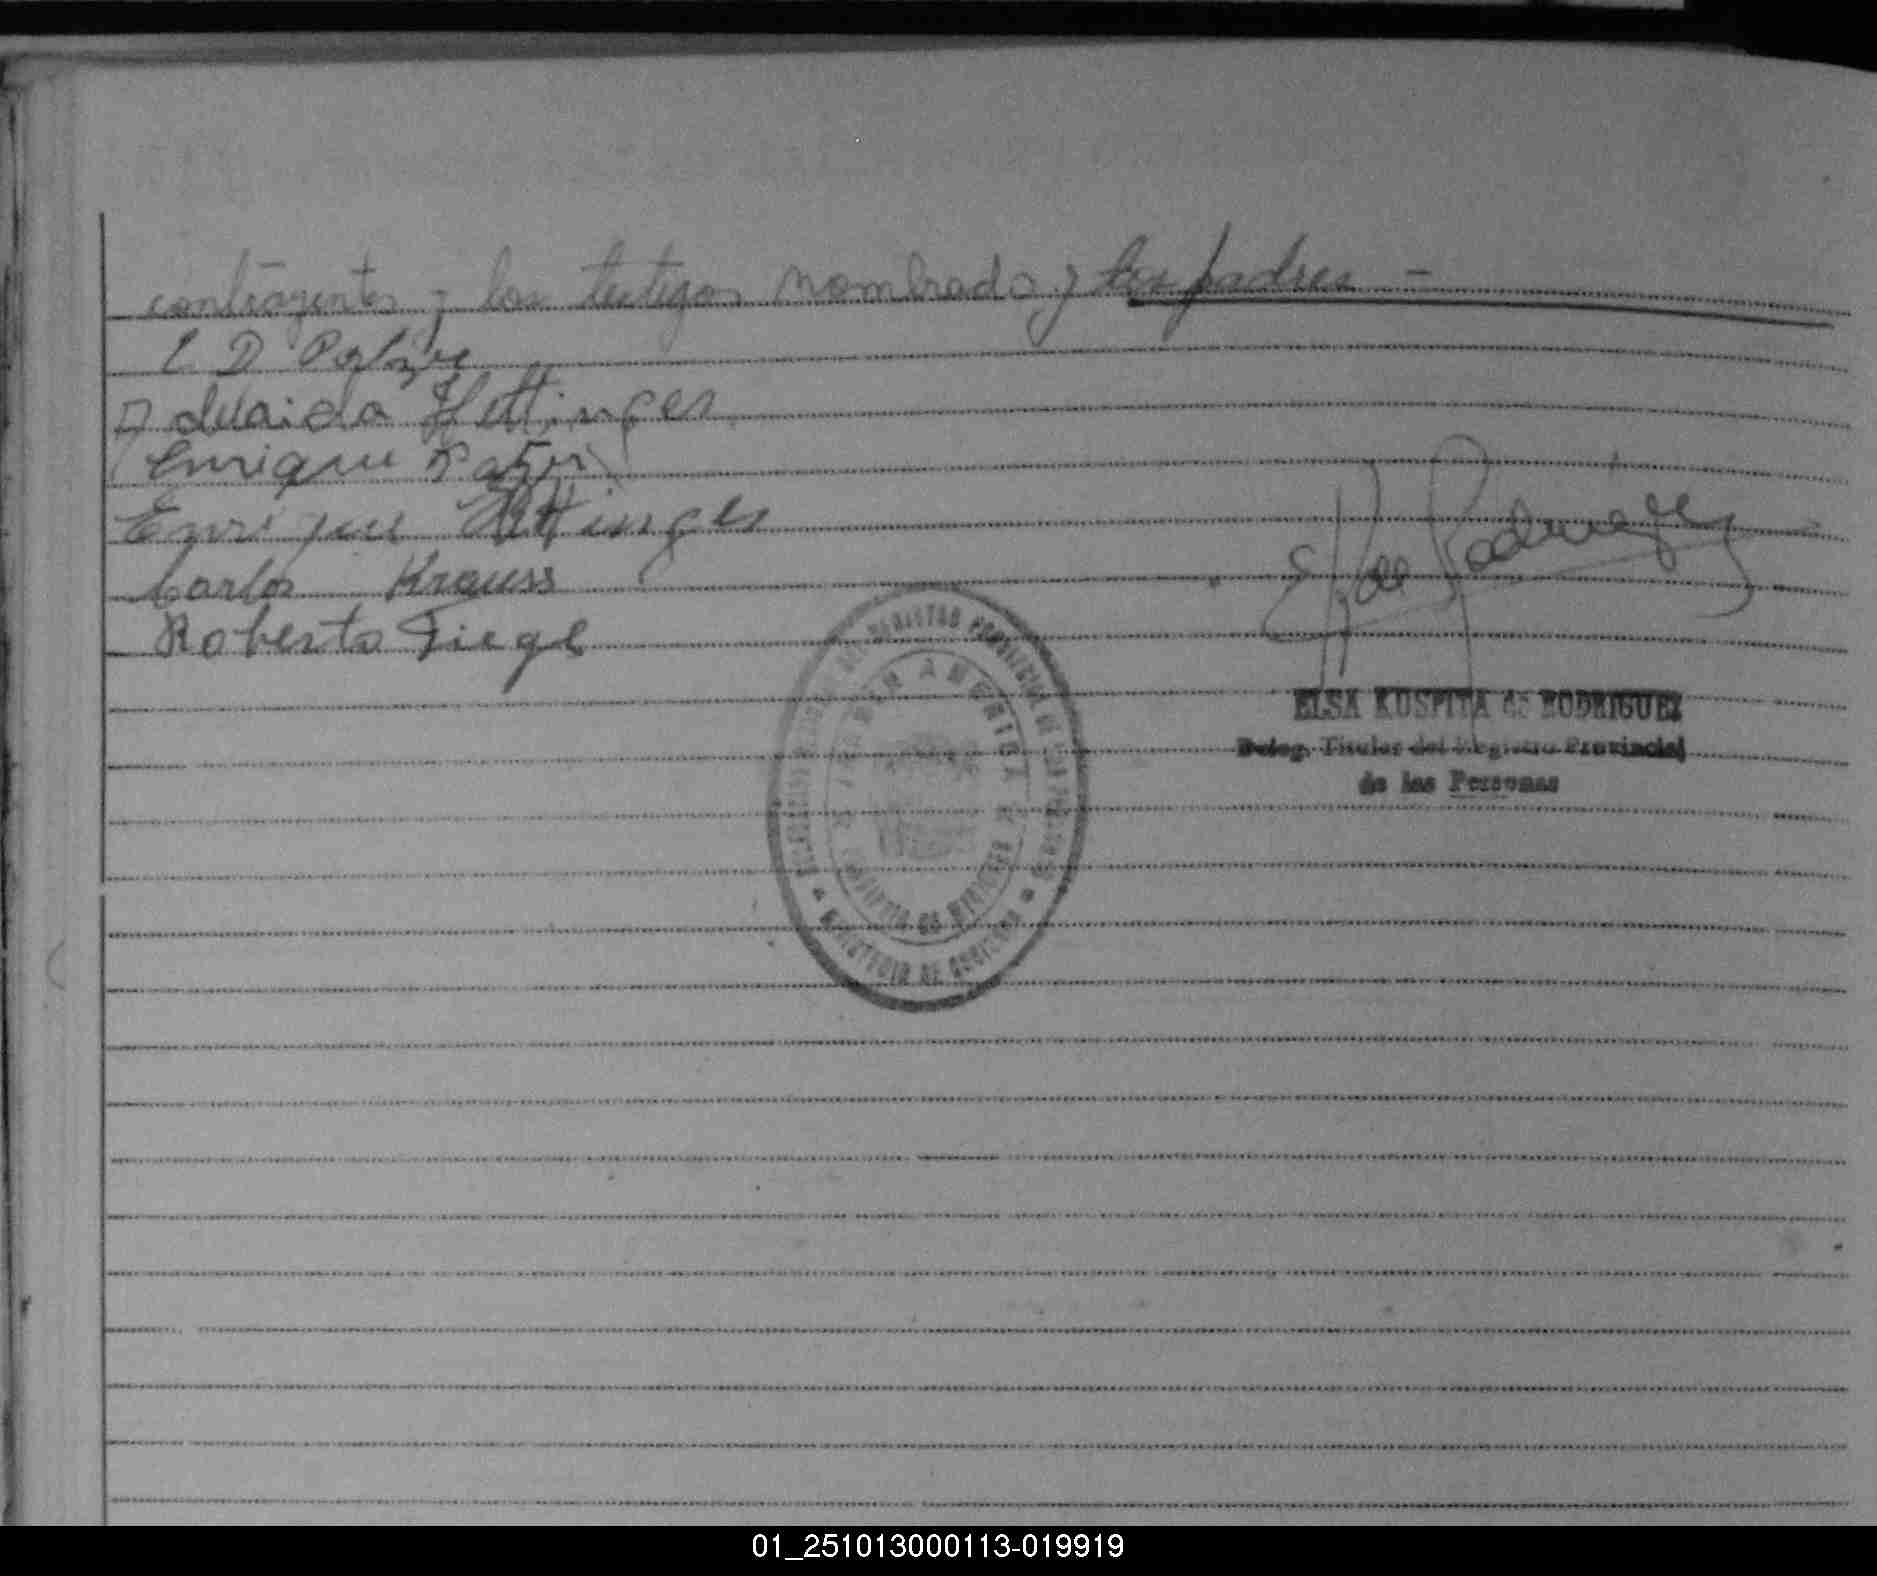 contrayentes y los testigos nombrado y los padres -
E D
Adelaida Hettinger
Enrique
Enrique Hettinger
Carlos Krauss
Roberto Fiege
ELSA KUSPITA de RODRIGUEZ
Deleg. Titular del Registro Provincial
de las Personas
REGISTRO PROVINCIAL DE LAS PERSONAS
JARDIN AMERICA
01_251013000113-019919